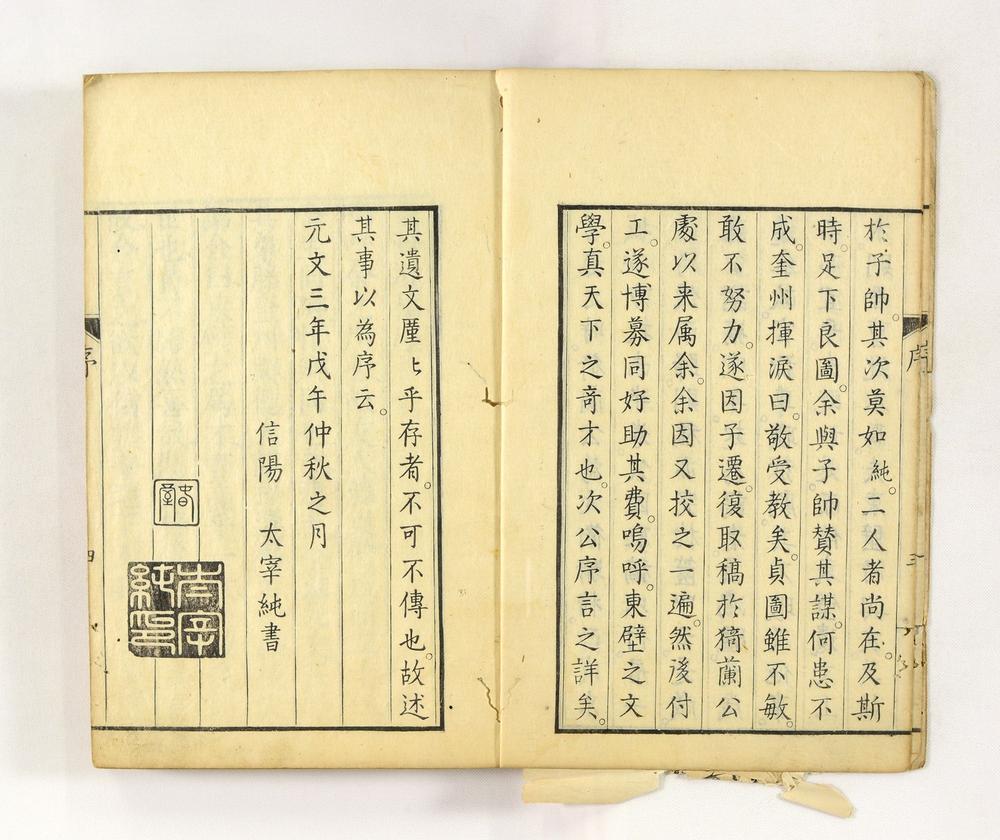 於子帥。其次莫如純。二人者尚在。及斯
時。足下良圖。余與子帥贊其謀。何患不
成。奎州揮淚曰。敬受教矣。貞圖雖不敏。
敢不努力。遂因子遷。復取稿於猗蘭公
處以来属余。余因又挍之一遍。然後付
工。遂博募同好助其費。嗚呼。東壁之文
學。真天下之奇才也。次公序言之詳矣。
序
三
其遺文厪〻乎存者。不可不傳也。故述
其事以為序云。
元文三年戊午仲秋之月
信陽 太宰純書
序
四